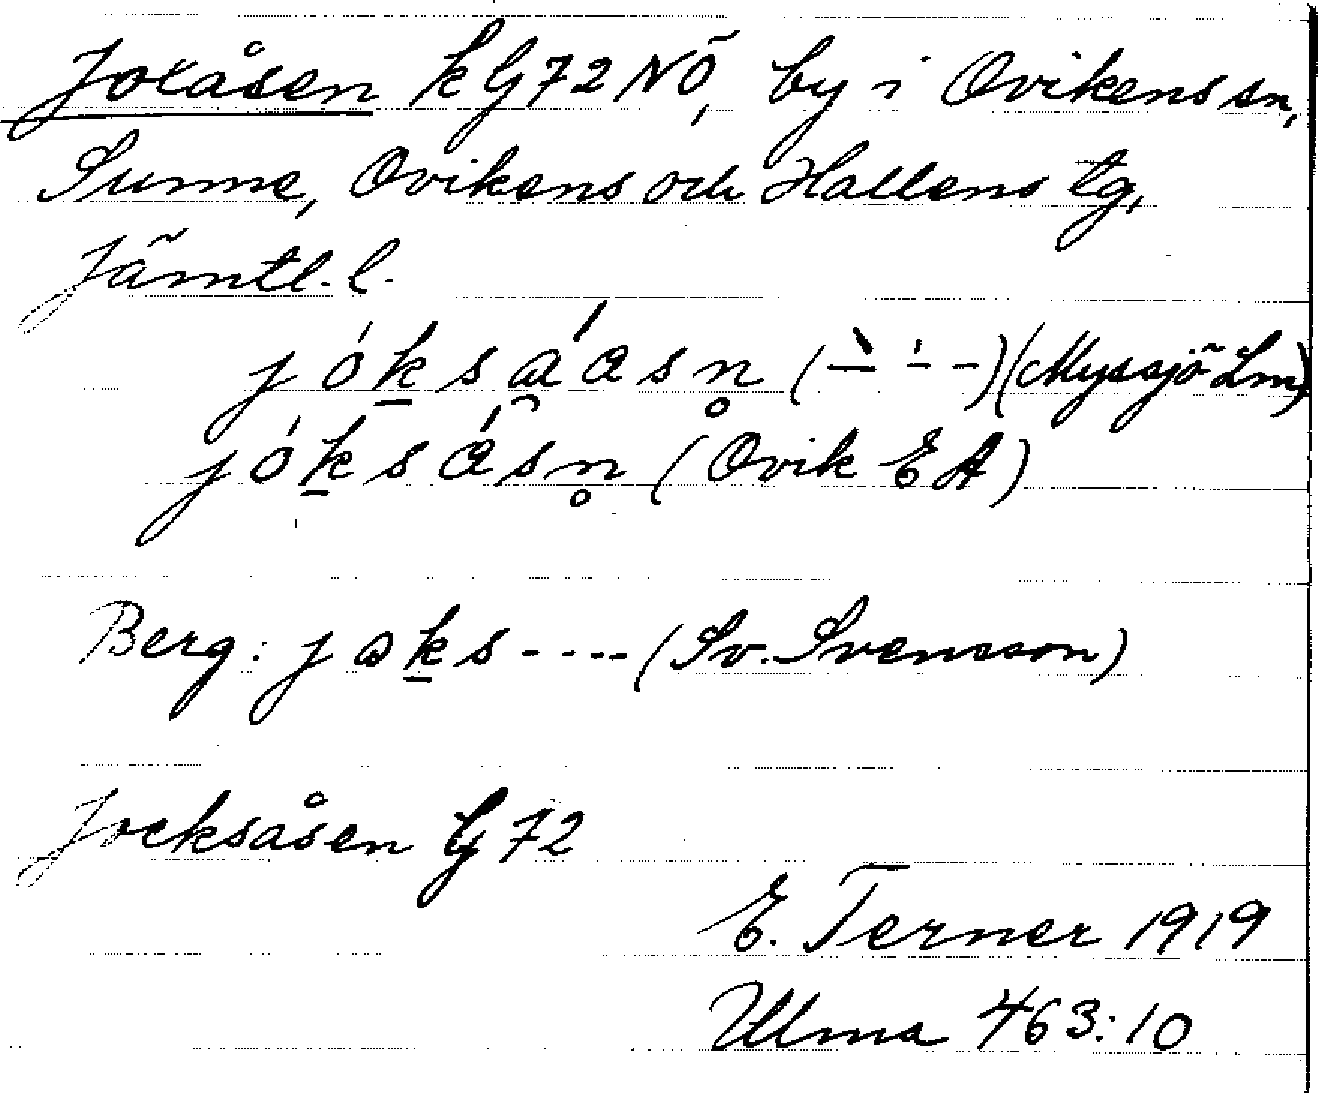 Joxåsen k G 72 NÖ, by i Ovikens sn,
Sunne, Ovikens och Hallens tg,
Jämtl. l.
jók̲sa̯ásn̥ (– – –) (Myssjö Lm)
jók̲sásn̥ (Ovik E A)
Berg: jok̲s---- (Sv. Svensson)
Jocksåsen G 72
E. Terner 1919
Ulma 463:10